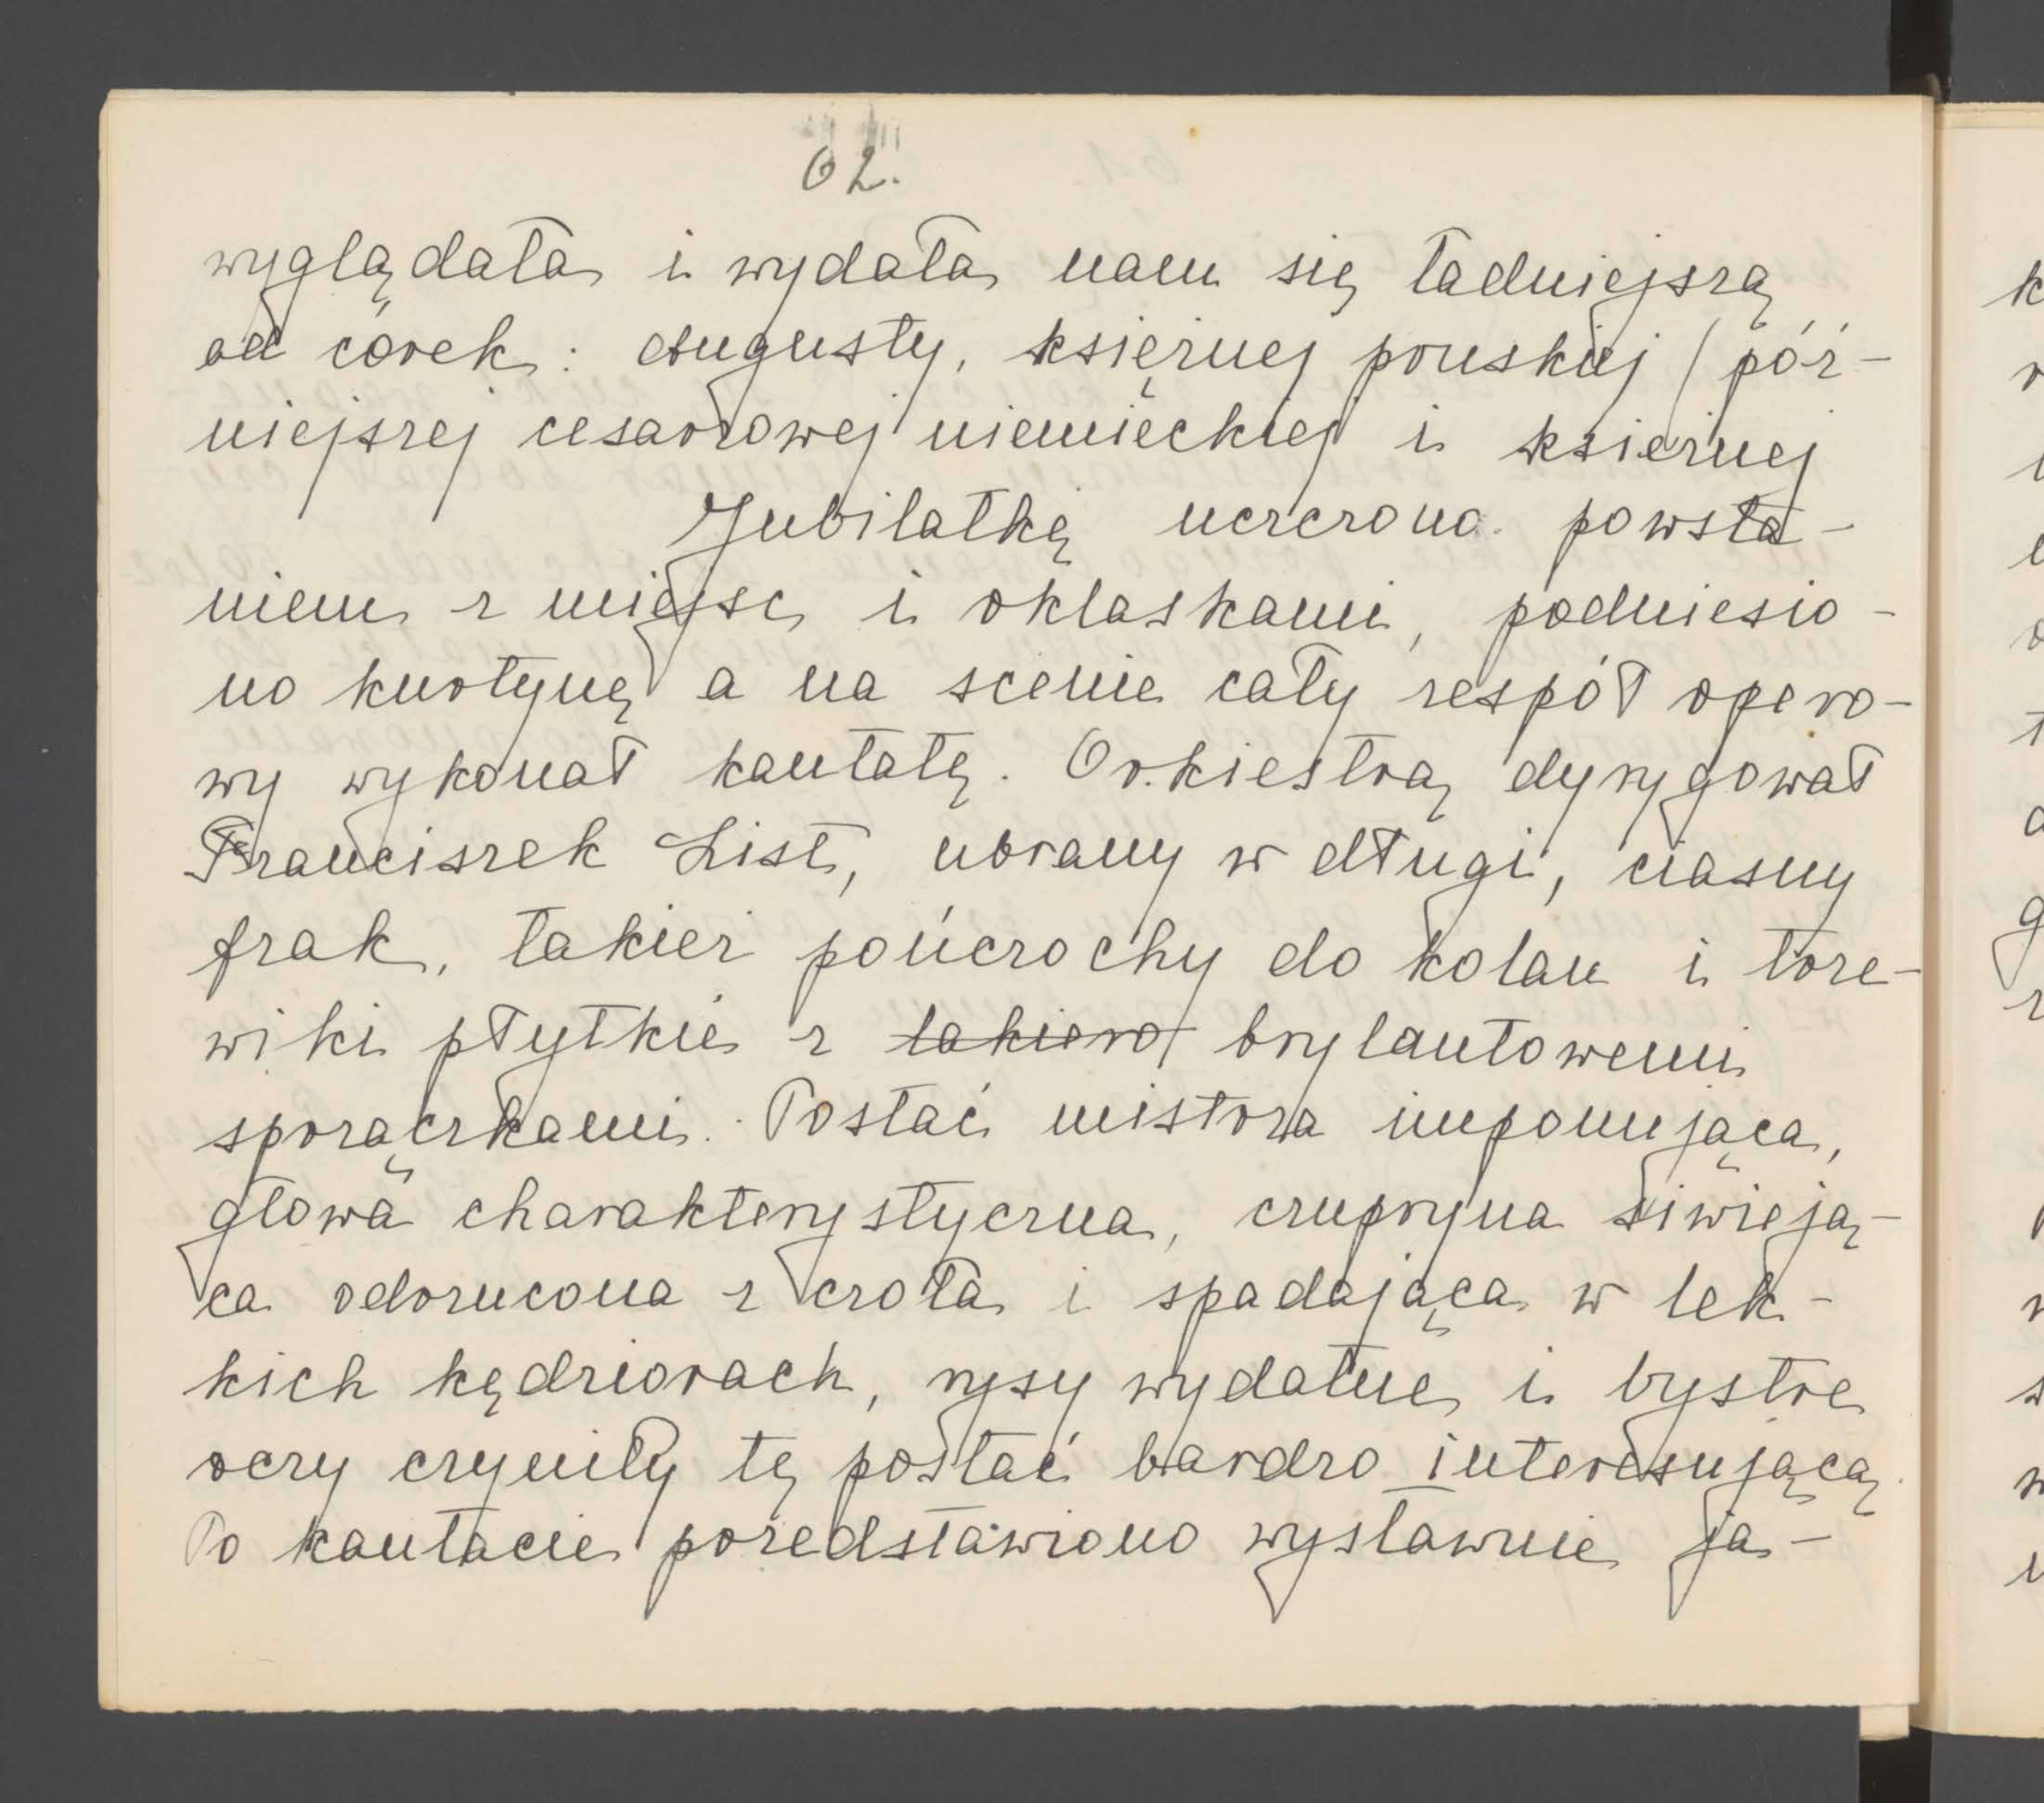 62.
wyglądała i wydała nam się ładniejszą
od córek: Augusty, księżnej pruskiej / póź-
niejszej cesarzowej niemieckiej i księżnej
Jubilatkę uczczono powsta-
niem z miejsc i oklaskami, podniesio-
no kurtynę a na scenie cały zespół opero-
wy wykonał kantatę. Orkiestrą dyrygował
Franciszek List, ubrany w długi, ciasny
frak, takież pończochy do kolan i trze-
wiki płytkie z lakiero brylantowemi
sprzączkami. Postać mistrza imponująca,
głowa charakterystyczna, czupryna siwieją-
ca odrzucona z czoła i spadająca w lek-
kich kędziorach, rysy wydatne i bystre
oczy czyniły tę postać bardzo interesującą.
Po kantacie przedstawiono wystawnie ja-